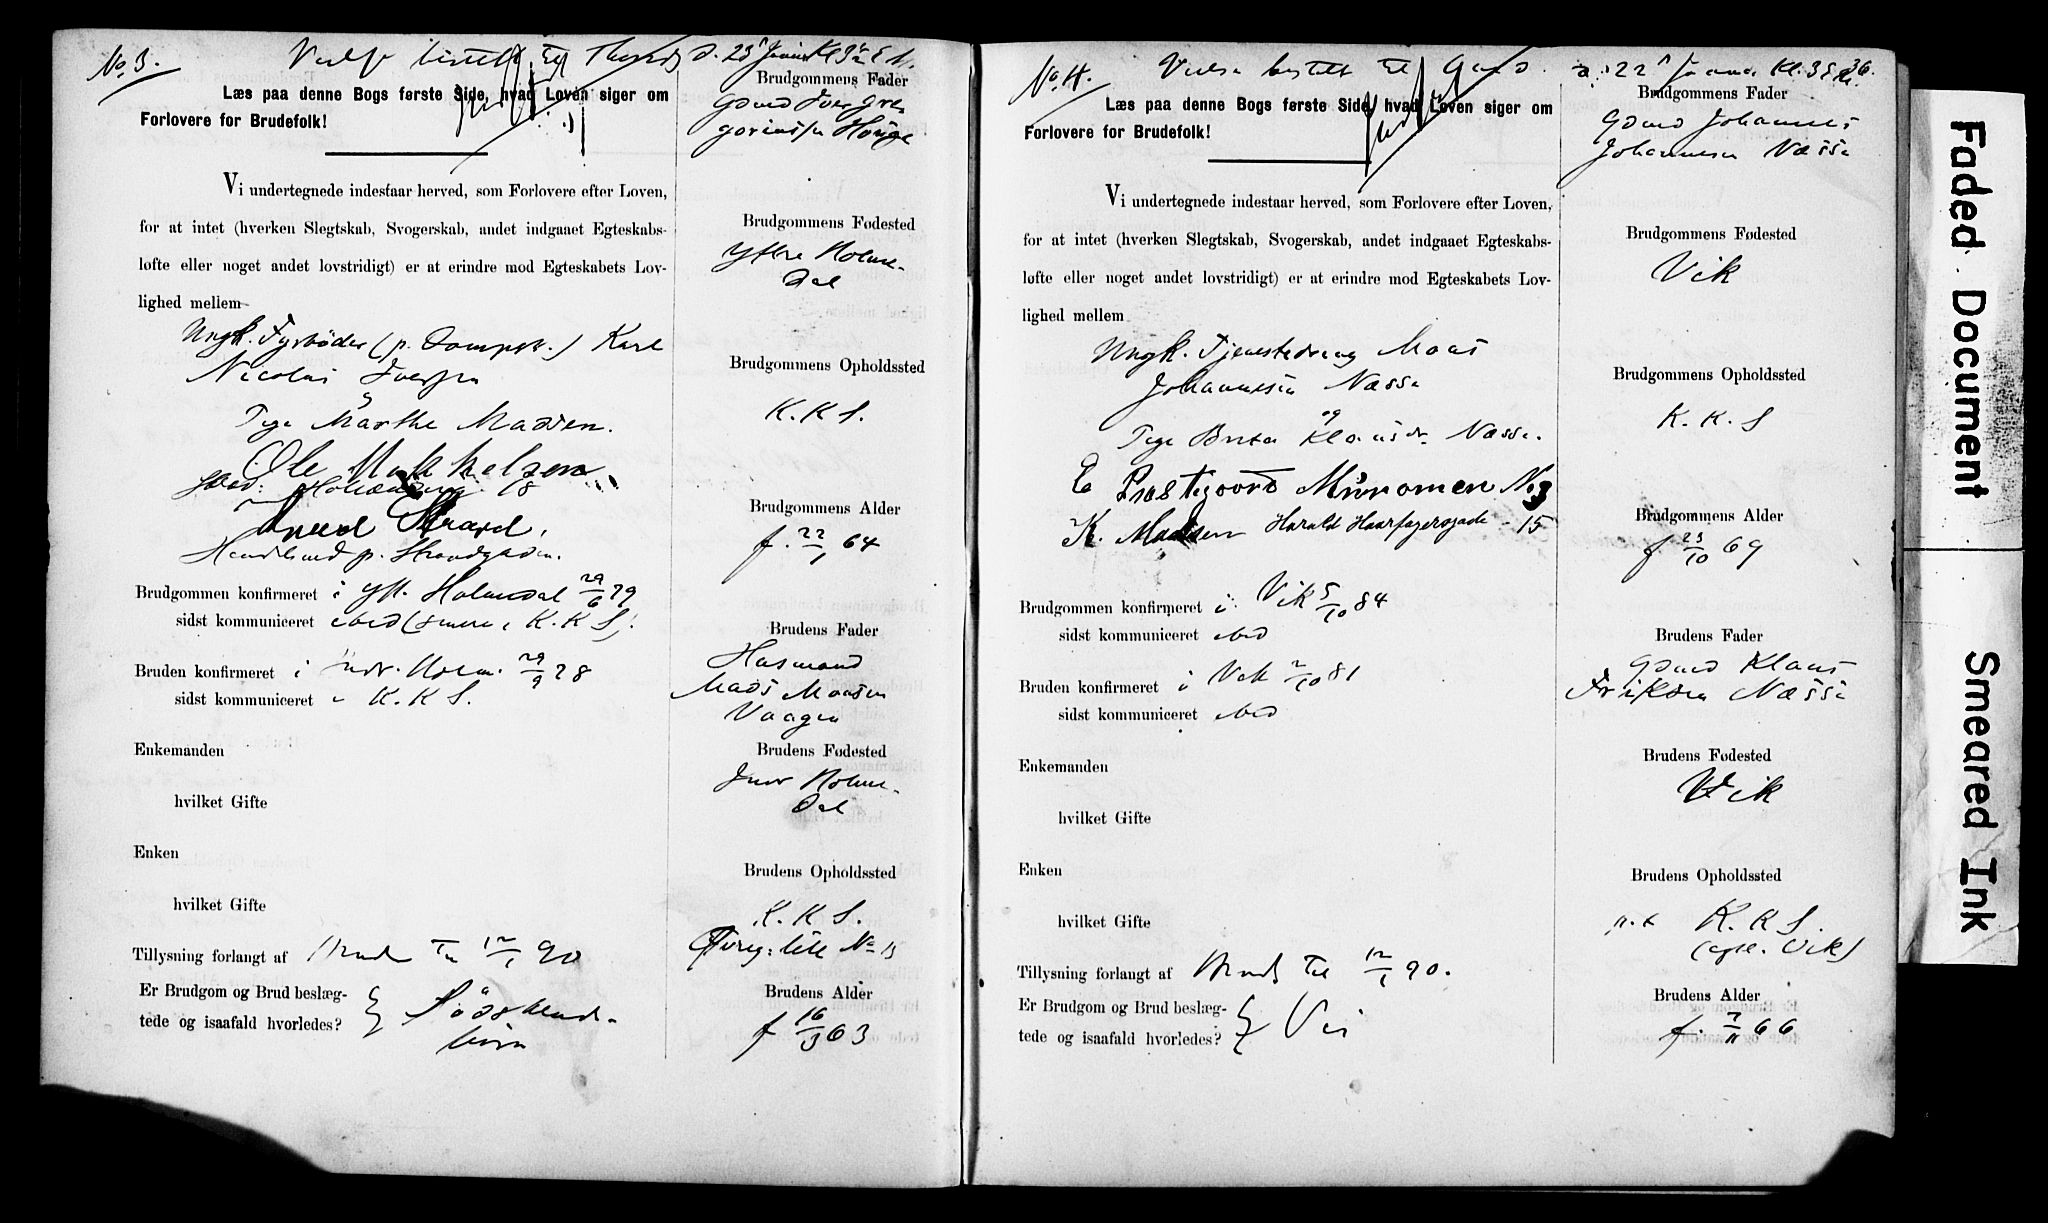 No. 3.
Vielse bestilt til Thorsdg d. 23 Januar Kl
Læs paa denne Bogs første Side, hvad Loven siger om
Forlovere for Brudefolk!
Vi undertegnede indestaar herved, som Forlovere efter Loven,
for at intet (hverken Slegtskab, Svogerskab, andet indgaaet Egteskabs-
løfte eller noget andet lovstridigt) er at erindre mod Egteskabets Lov-
lighed mellem
Ungk. Fyrbøder (p. Dampsk.) Karl
Nicolai Iversen
og
Pige Marthe Madsen.
Ole
18
Strand,
p. Strandgaden.
Brudgommen konfirmeret i Yt. Holmedal 29/6 79
sidst kommuniceret ibid (senere i K. K S).
Bruden konfirmeret i Indr. Holm. 29/9 78
sidst kommuniceret i K. K S.
Enkemanden
hvilket Gifte
Enken
hvilket Gifte
Tillysning forlangt af Brudg Til 12/1 90
Er Brudgom og Brud beslæg-
tede og isaafald hvorledes? Södskende-
börn
Brudgommens Fader
Gbmd Iver Gre
goriussen Houge
Brudgommens Fødested
Yttre Holme-
dal
Brudgommens Opholdssted
K. K S.
Brudgommens Alder
f. 22/1 64
Brudens Fader
Husmand
Mads Monsen
Vaagen
Brudens Fødested
Indr Holme-
dal
Brudens Opholdssted
K. K S.
No 13
Brudens Alder
f 16/3 63
No. 4.
Vielse bestilt til Onsd. d. 22 Januar Kl. 3
36.
Læs paa denne Bogs første Side, hvad Loven siger om
Forlovere for Brudefolk!
Vi undertegnede indestaar herved, som Forlovere efter Loven,
for at intet (hverken Slegtskab, Svogerskab, andet indgaaet Egteskabs-
løfte eller noget andet lovstridigt) er at erindre mod Egteskabets Lov-
lighed mellem
Ungk. Tjenestedreng Mons
Johannesen Næsse
og
Pige Brita Klausdr. Næsse.
E Prestegaard No 3
K. Madsen Harald Haarfagersgade 15
Brudgommen konfirmeret i Vik 5/10 84
sidst kommuniceret ibid
Bruden konfirmeret i Vik 2/10 81
sidst kommuniceret ibid
Enkemanden
hvilket Gifte
Enken
hvilket Gifte
Tillysning forlangt af Brudg Til 12/1 90.
Er Brudgom og Brud beslæg-
tede og isaafald hvorledes?
Brudgommens Fader
Gbmd Johannes
Johannesen Næsse
Brudgommens Fødested
Vik
Brudgommens Opholdssted
K. K. S
Brudgommens Alder
f 23/10 69
Brudens Fader
Gbmd Klaus
Eriksen Næsse
Brudens Fødested
Vik
Brudens Opholdssted
n. t. K. K S.
(egtl. Vik)
Brudens Alder
f. 7/11 66
Faded Document
Smeared Ink